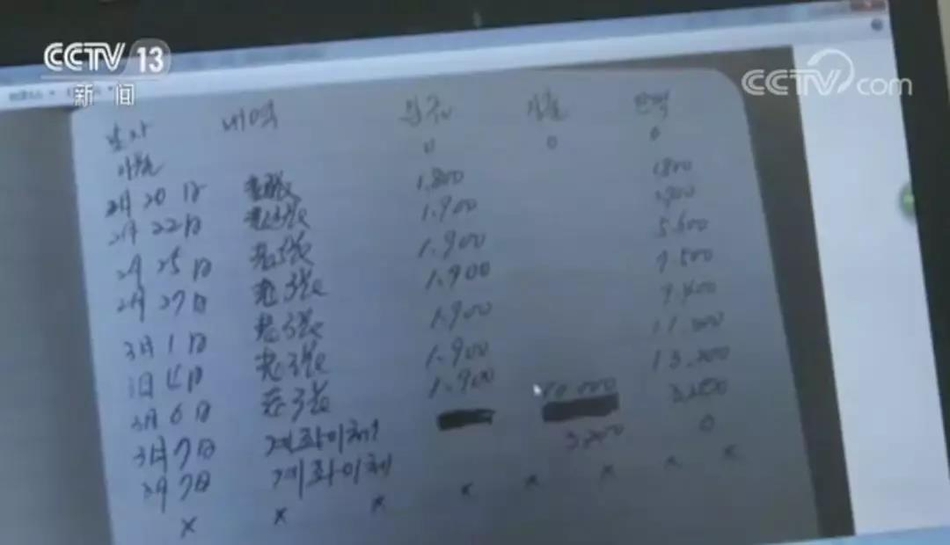 CCTV 13
新闻
CCTV.com
날자 내역 입금 지출 잔액
이월 0 0 0
2月 20日 1.800 1.800
2月 22日 1.900
2月 25日 1.900 5.600
2月 27日 1.900 7.500
3月 1日 1.900 9.400
3月 4日 1.900 11.300
3月 6日 1.900 13.200
3月 7日 계좌이체 10.000 3.200
3月 7日 계좌이체 3.200 0
× × × × × × × ×